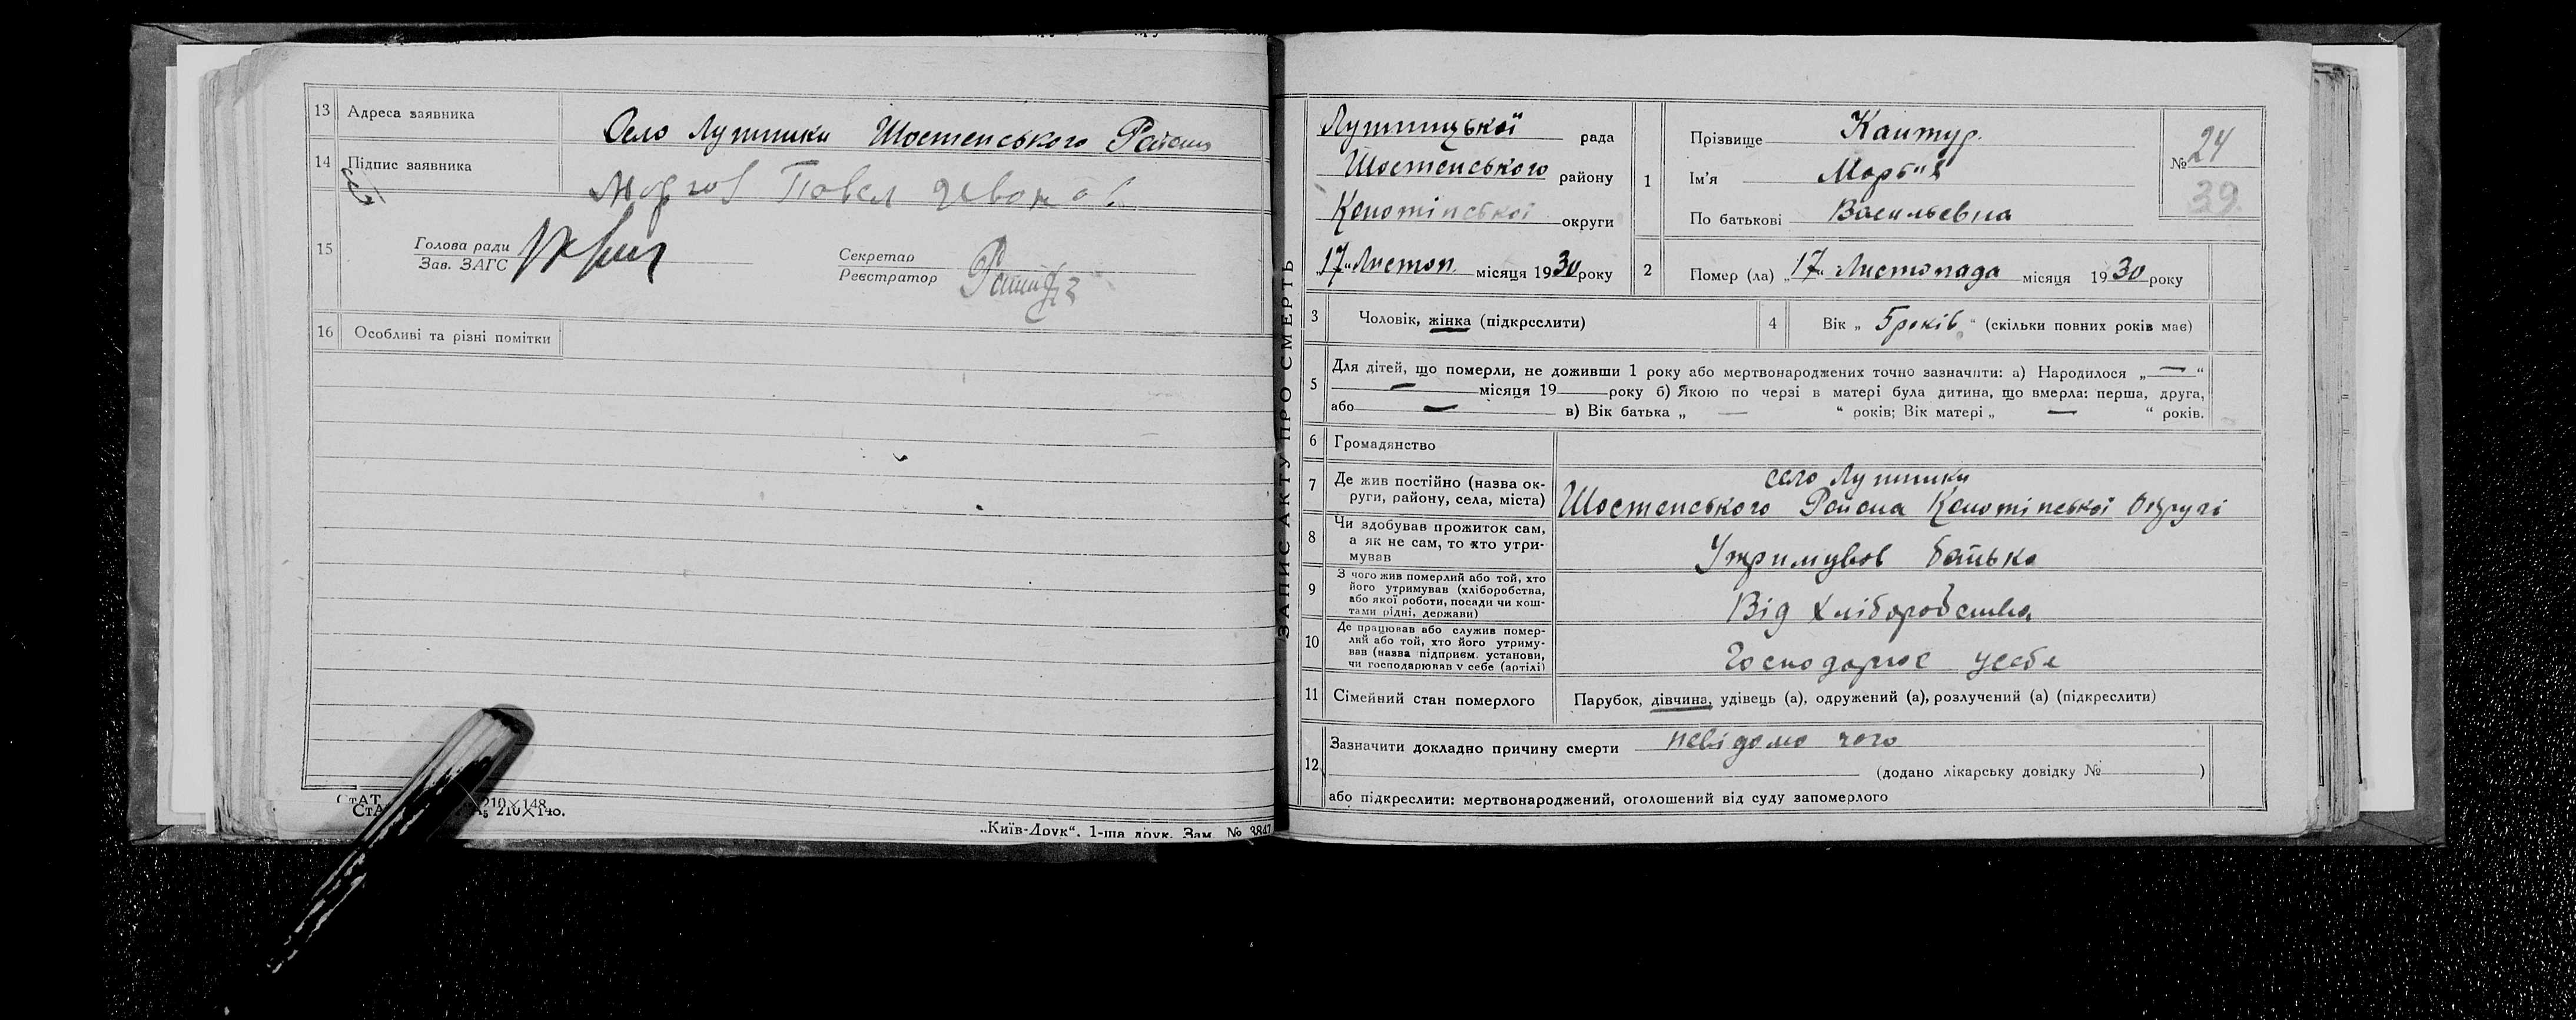 13 Адреса заявника Село Лушники Шостенського Району
14 Підпис заявника Павел Иванов
15 Голова ради
Зав. ЗАГС
Секретар
Реєстратор
16 Особливі та різні помітки
210×148
210×148.
„Київ-Друк“. 1-ша друк. Зам. № 3847
ЗАПИС АКТУ ПРО СМЕРТЬ
Лушницької рада
Шостенського району
Конотіпської округи
„17“ Листоп. місяця 1930 року
1 Прізвище Кантур.
Ім'я
По батькові Васильевна
№ 24
39
2 Помер (ла) „17“ Листопада місяця 1930 року
3 Чоловік, жінка (підкреслити)
4 Вік „ 5 років “ (скільки повних років має)
5 Для дітей, що померли, не доживши 1 року або мертвонароджених точно зазначити: а) Народилося „—“
— місяця 19 року б) Якою по черзі в матері була дитина, що вмерла: перша, друга,
або — в) Вік батька „ — “ років; Вік матері „ — “ років.
6 Громадянство
7 Де жив постійно (назва ок-
руги, району, села, міста)
село Лушники
Шостенського Района Конотіпської Округі
8 Чи здобував прожиток сам,
а як не сам, то хто утри-
мував
Утримував батько
9 З чого жив померлий або той, хто
його утримував (хліборобства,
або якої роботи, посади чи кош-
тами рідні, держави)
Від Хліборобства
10 Де працював або служив помер-
лий або той, хто його утриму-
вав (назва підприєм. установи,
чи господарював у себе (артілі)
Господарює усебе
11 Сімейний стан померлого Парубок, дівчина, удівець (а), одружений (а), розлучений (а) (підкреслити)
12 Зазначити докладно причину смерти невідомо чого
(додано лікарську довідку № )
або підкреслити: мертвонароджений, оголошений від суду запомерлого